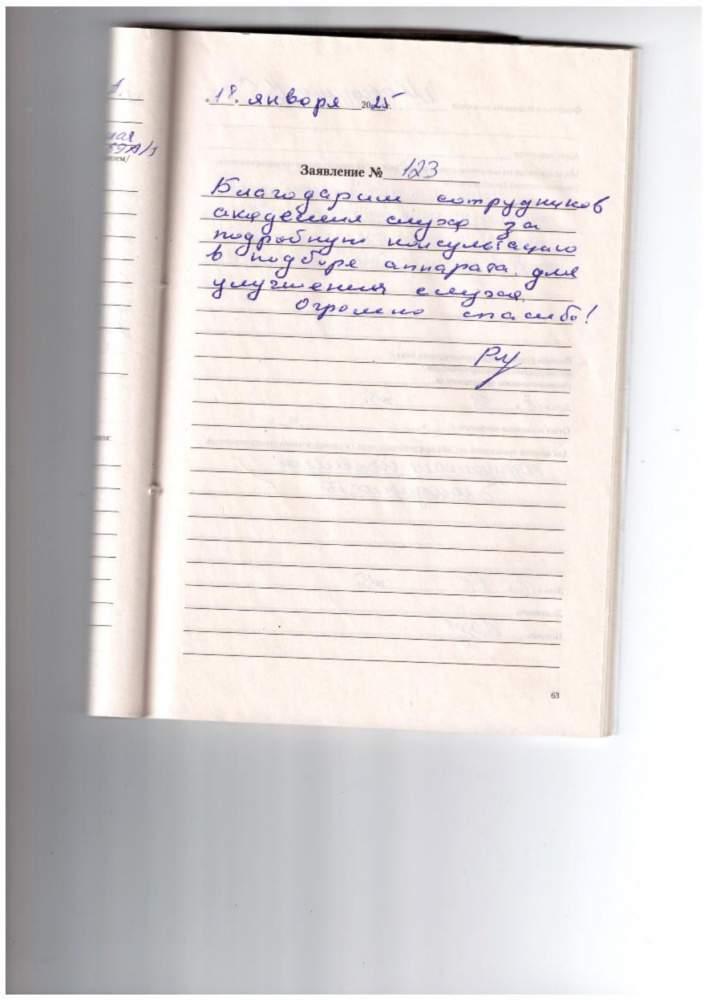 18. января 2025г.
Заявление № 123
Благодарим сотрудников
академия слуха за
подробную консультацию
в подборе аппарата для
улучшения слуха.
Огромное спасибо!
63